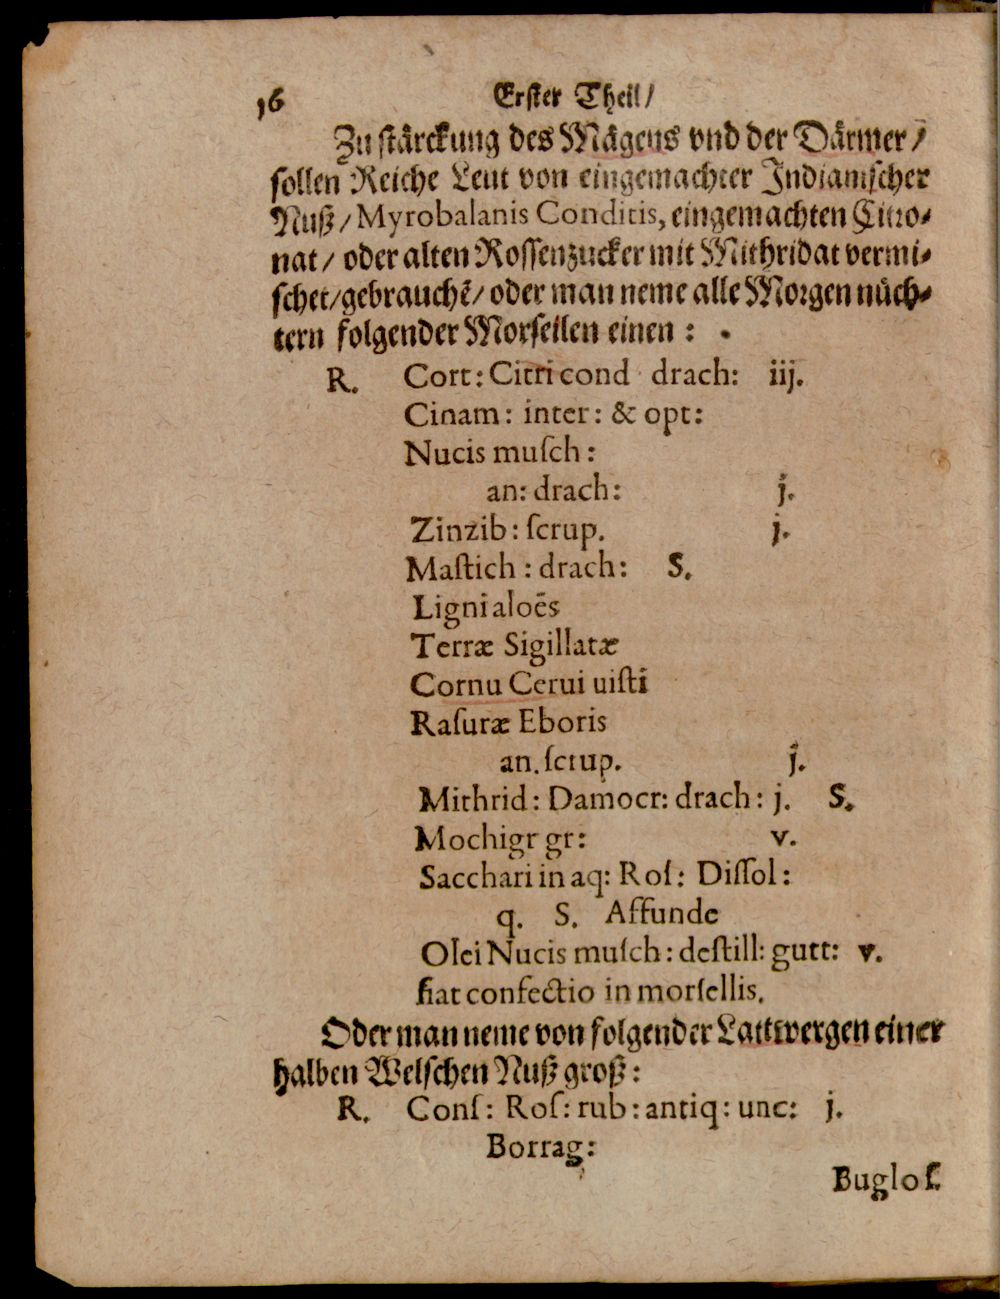 16 Erster Theil/
Zu stärckung des Mägens vnd der Därmer/
sollen Reiche Leut von eingemachter Jndianischer
Nuß/Myrobalanis Conditis, eingemachten Citro-
nat/ oder alten Rossenzucker mit Mithridat vermi-
schet/gebrauchẽ/ oder man neme alle Morgen nüch-
tern folgender Morsellen einen: .
R. Cort: Citri cond drach: iij.
Cinam: inter: & opt:
Nucis muſch:
an: drach: j.
Zinzib: ſcrup. j.
Maſtich: drach: S.
Ligni aloẽs
Terræ Sigillatæ
Cornu Cerui uiſti
Raſuræ Eboris
an. ſcrup. j.
Mithrid: Damocr: drach: j. S.
Mochigr gr: v.
Sacchari in aq: Roſ: Diſſol:
q. S. Affunde
Olei Nucis muſch: deſtill: gutt: v.
fiat confectio in morſellis.
Oder man neme von folgender Lattwergen einer
halben Welschen Nuß groß:
R. Conſ: Roſ: rub: antiq: unc: j.
Borrag:
Bugloſ.